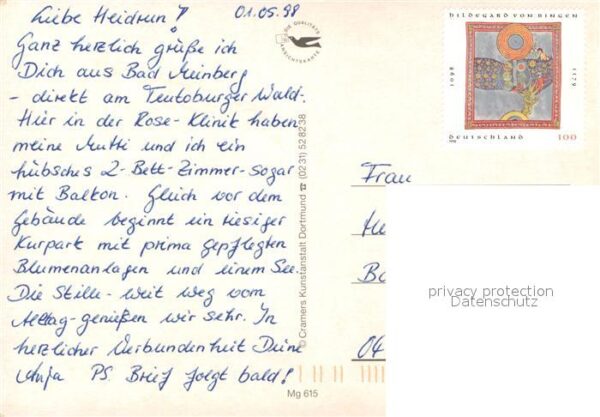 Liebe Heidrun! 01.05.98
Ganz herzlich grüße ich
Dich aus Bad Meinberg
- direkt am Teutoburger Wald.
Hier in der Rose-Klinik haben
meine Mutti und ich ein
hübsches 2-Bett-Zimmer-sogar
mit Balkon. Gleich vor dem
Gebäude beginnt ein riesiger
Kurpark mit prima gepflegten
Blumenanlagen und einem See.
Die Stille-weit weg vom
Alltag-genießen wir sehr. In
herzlicher Verbundenheit Deine
Anja PS. Brief folgt bald!
DIE QUALITÄTS
ANSICHTSKARTE
© Cramers Kunstanstalt Dortmund ☎ (0231) 528238
Mg 615
HILDEGARD VON BINGEN
1098
1179
DEUTSCHLAND 100
1998
Frau
04
privacy protection
Datenschutz